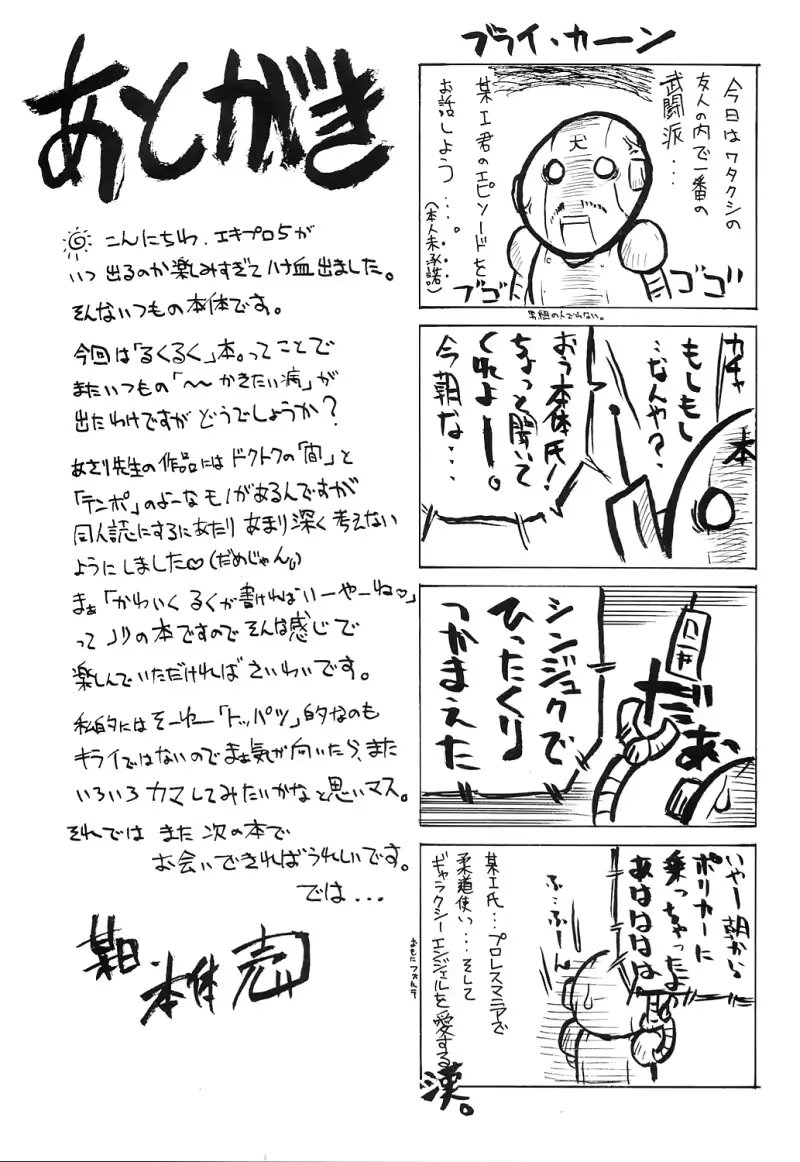 あとがき
こんにちわ、エキプロ5が
いつ出るのか楽しみすぎてハナ血出ました。
そんないつもの本体です。
今回は「るくるく」本。ってことで
またいつもの「〜〜かきたい病」が
出たわけですがどうでしょうか?
あさり先生の作品にはドクトクの「間」と
「テンポ」のよーなモノがあるんですが
同人誌にするにあたりあまり深く考えない
ようにしました♡(だめじゃん)
まぁ「かわいくるくが書ければいーやーね♡」
ってノリの本ですのでそんな感じで
楽しんでいただければさいわいです。
私的にはそーゆー「トッパツ」的なのも
キライではないのでまぁ気が向いたら、また
いろいろカマしてみたいかなと思いマス。
それではまた次の本で
お会いできればうれしいです。
では...
某日
本体売
ブライ・カーン
今日はワタクシの
友人の内で一番の
武闘派…
某エ君のエピソードを
お話しよう…。
(本人未承諾)
犬
ゴゴ
ブゴ
カチャ
もしもし
…なんや?
本
おう本体氏!
ちょっと聞いて
くれよー。
今朝な…
シンジュクで
ひったくり
つかまえた
だぁ
いやー朝から
ポリカーに
乗っちゃったよ
あはははは
ふ…ふーん
某エ氏…プロレスマニアで
柔道使い…そして
ギャラクシーエンジェルを愛する
漢。
おもにフォルテ